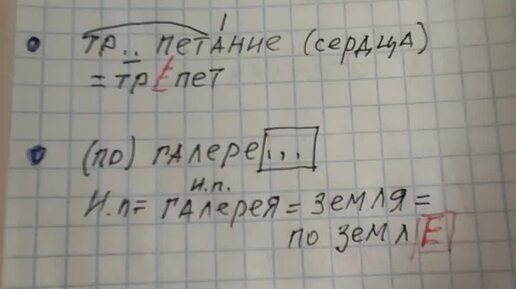 тр.. петАние (сердца)
= трЕпет
(по) галере...
и.п.
И.п= галерея = земля =
по землЕ